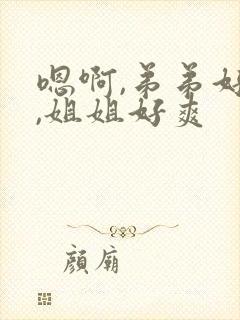 嗯啊,弟弟好
,姐姐好爽
顔廟